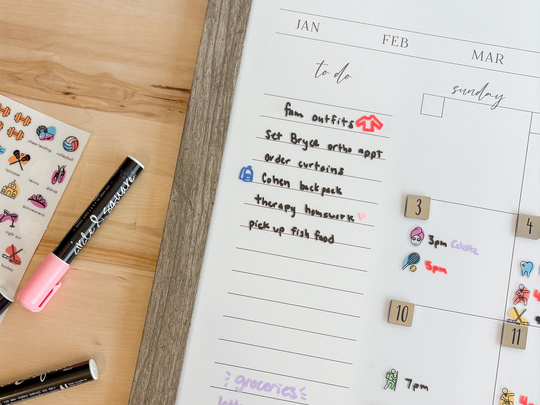 JAN FEB MAR
to do
sunday
fam outfits
set Bryce ortho appt
order curtains
Cohen backpack
therapy homework
pick up fish food
3
4
3pm
5pm
10
11
7pm
groceries
cheerleading
volleyball
tennis
dance
night out
hockey